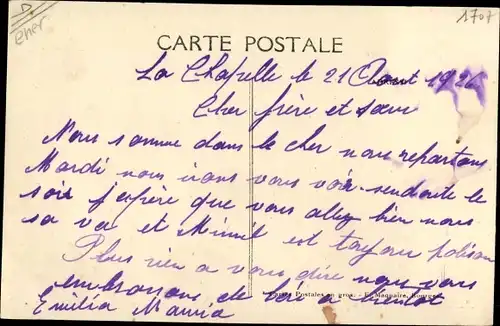 D.
cher
1707
CARTE POSTALE
La Chapelle le 21 Aout 1926
Cher frère et sœur
Nous somme dans le cher nous repartons
Mardi nous irons vous voir sendoute le
soir j'espère que vous allez bien nous
sa va et Mimil est toujour polison
Plus rien a vous dire nous vous
embrassons de
a bientot
Emilia